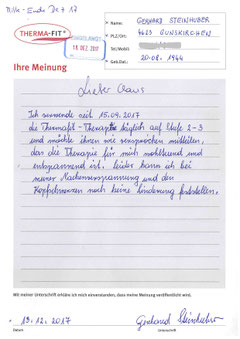 Mitte - Ende Dez 17
THERMA-FIT®
18. DEZ. 2017
Name: GERHARD STEINHUBER
PLZ/Ort: 4623 GUNSKIRCHEN
Tel/Mobil:
Geb.Dat.: 20.08.1944
Ihre Meinung
Lieber Claus
Ich verwende seit 15.09.2017
die Thermafit-Therapie täglich auf Stufe 2-3
und möchte ihnen wie versprochen mitteilen,
das die Therapie für mich wohltuend und
entspannend ist. Leider kann ich bei
meiner Nackenverspannung und den
Kopfschmerzen noch keine Linderung feststellen.
Mit meiner Unterschrift erkläre ich mich einverstanden, dass meine Meinung veröffentlicht wird.
13.12.2017
Gerhard Steinhuber
Datum
Unterschrift